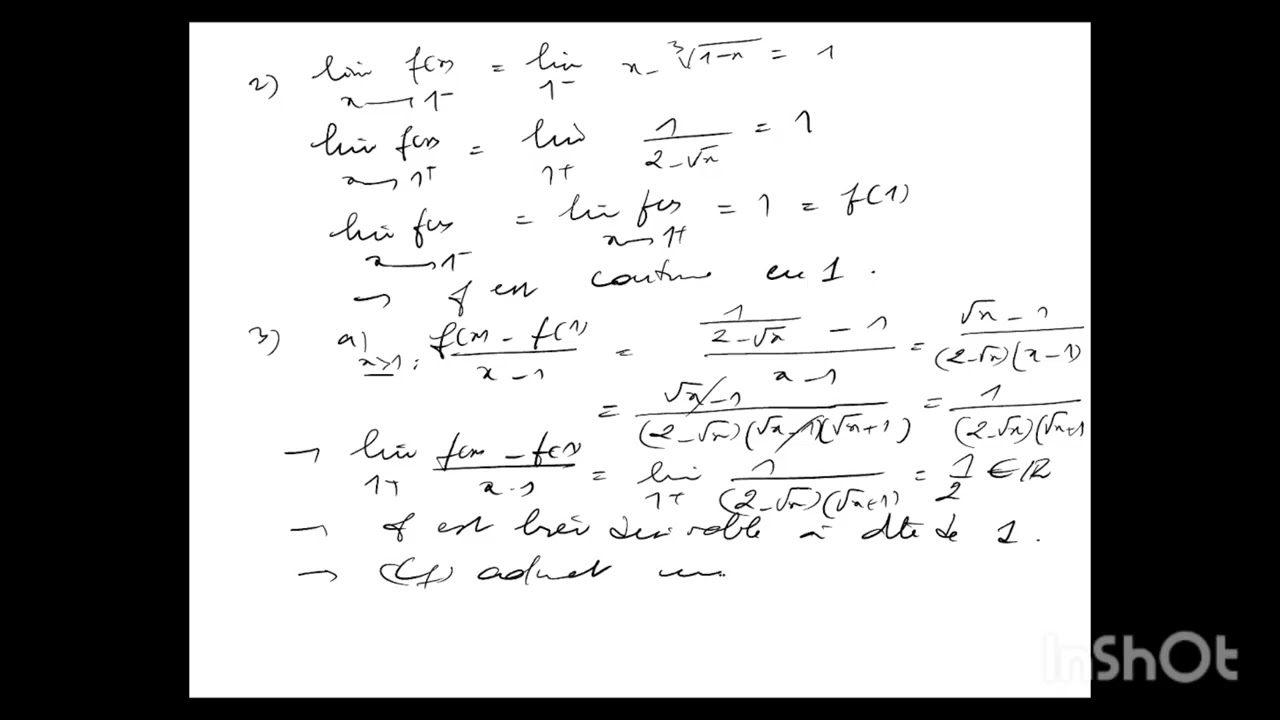 2) lim f(x) = lim x - ∛(1-x) = 1
x → 1⁻ 1⁻
lim f(x) = lim 1/(2-√x) = 1
x → 1⁺ 1⁺
lim f(x) = lim f(x) = 1 = f(1)
x → 1⁻ x → 1⁺
→ f est continue en 1.
3) a) x>1 : (f(x) - f(1))/(x-1) = (1/(2-√x) - 1)/(x-1) = (√x - 1)/((2-√x)(x-1))
= (√x - 1)/((2-√x)(√x-1)(√x+1)) = 1/((2-√x)(√x+1
→ lim (f(x) - f(1))/(x-1) = lim 1/((2-√x)(√x+1)) = 1/2 ∈ ℝ
1⁺ 1⁺
→ f est bien dérivable à dte de 1.
→ (Cf) admet un
InShOt